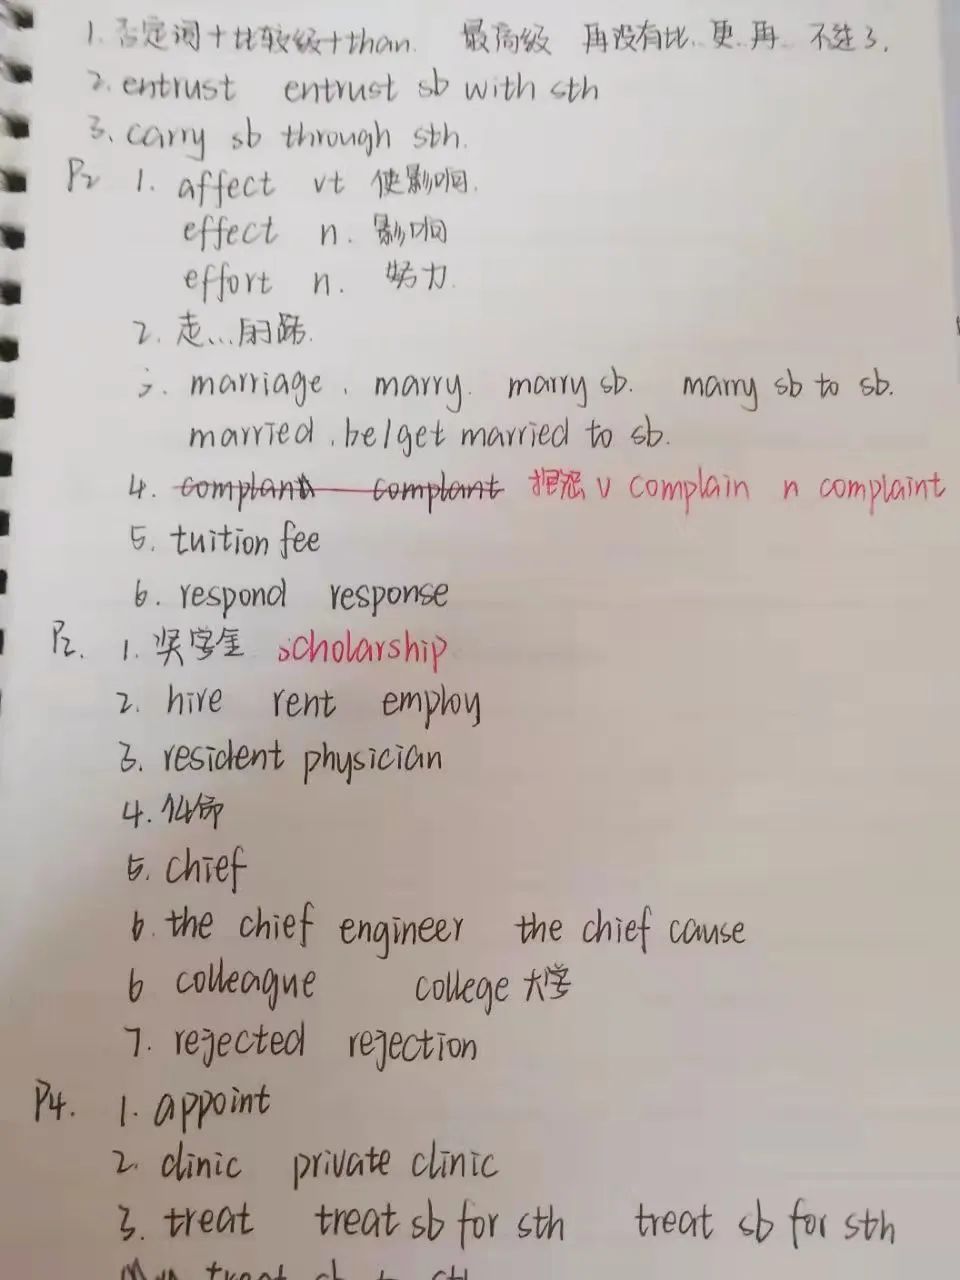 1. 否定词+比较级+than. 最高级 再没有比..更..再.. 不过了.
2. entrust entrust sb with sth
3. carry sb through sth.
P2 1. affect vt 使影响.
effect n. 影响
effort n. 努力.
2. 走...的路.
3. marriage. marry. marry sb. marry sb to sb.
married. be/get married to sb.
4. complant complant 抱怨 v complain n complaint
5. tuition fee
6. respond response
P2. 1. 奖学金 scholarship
2. hire rent employ
3. resident physician
4.
5. chief
6. the chief engineer the chief cause
6 colleague college 大学
7. rejected rejection
P4. 1. appoint
2. clinic private clinic
3. treat treat sb for sth treat sb for sth
treat sb to sth